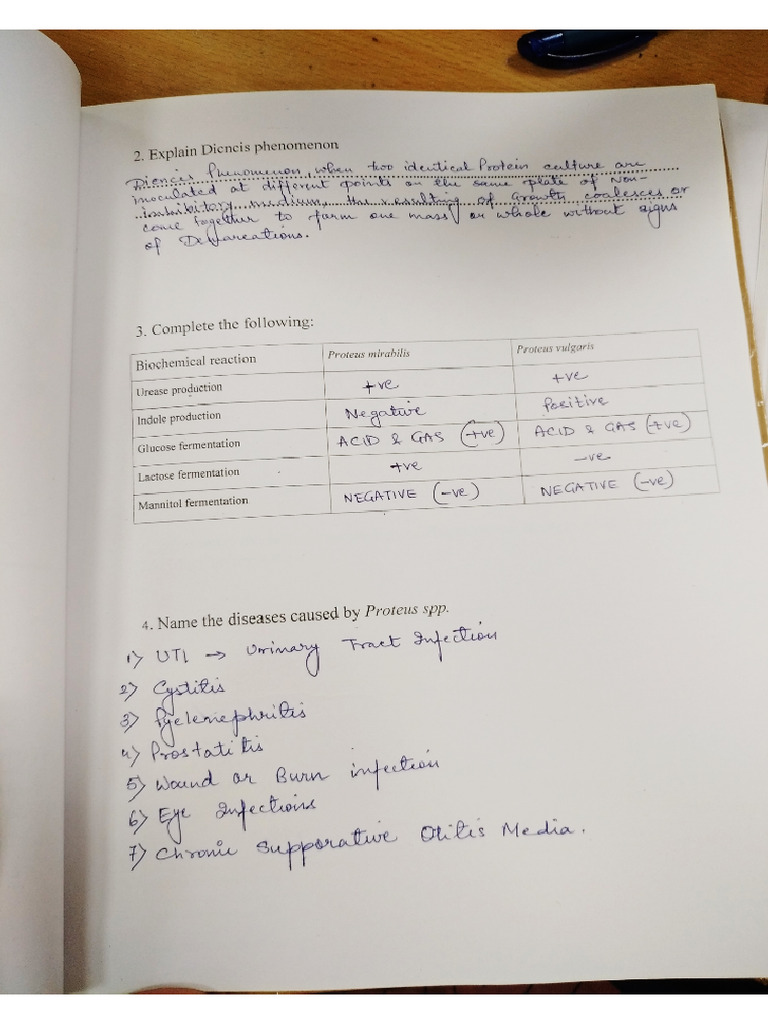 2. Explain Diencis phenomenon
Diencis Phenomenon, when two identical Protein culture are
inoculated at different points on the same plate of Non-
inhibitory medium, the resulting of Growth coalesces or
come together to form one mass or whole without signs
of Demarcations.
3. Complete the following:
Biochemical reaction Proteus mirabilis Proteus vulgaris
Urease production +ve +ve
Indole production Negative Positive
Glucose fermentation ACID & GAS (+ve) ACID & GAS (+ve)
Lactose fermentation +ve -ve
Mannitol fermentation NEGATIVE (-ve) NEGATIVE (-ve)
4. Name the diseases caused by Proteus spp.
1) UTI → Urinary Tract Infection
2) Cystitis
3) Pyelenephritis
4) Prostatitis
5) Wound or Burn infection
6) Eye Infections
7) Chronic Supporative Otitis Media.